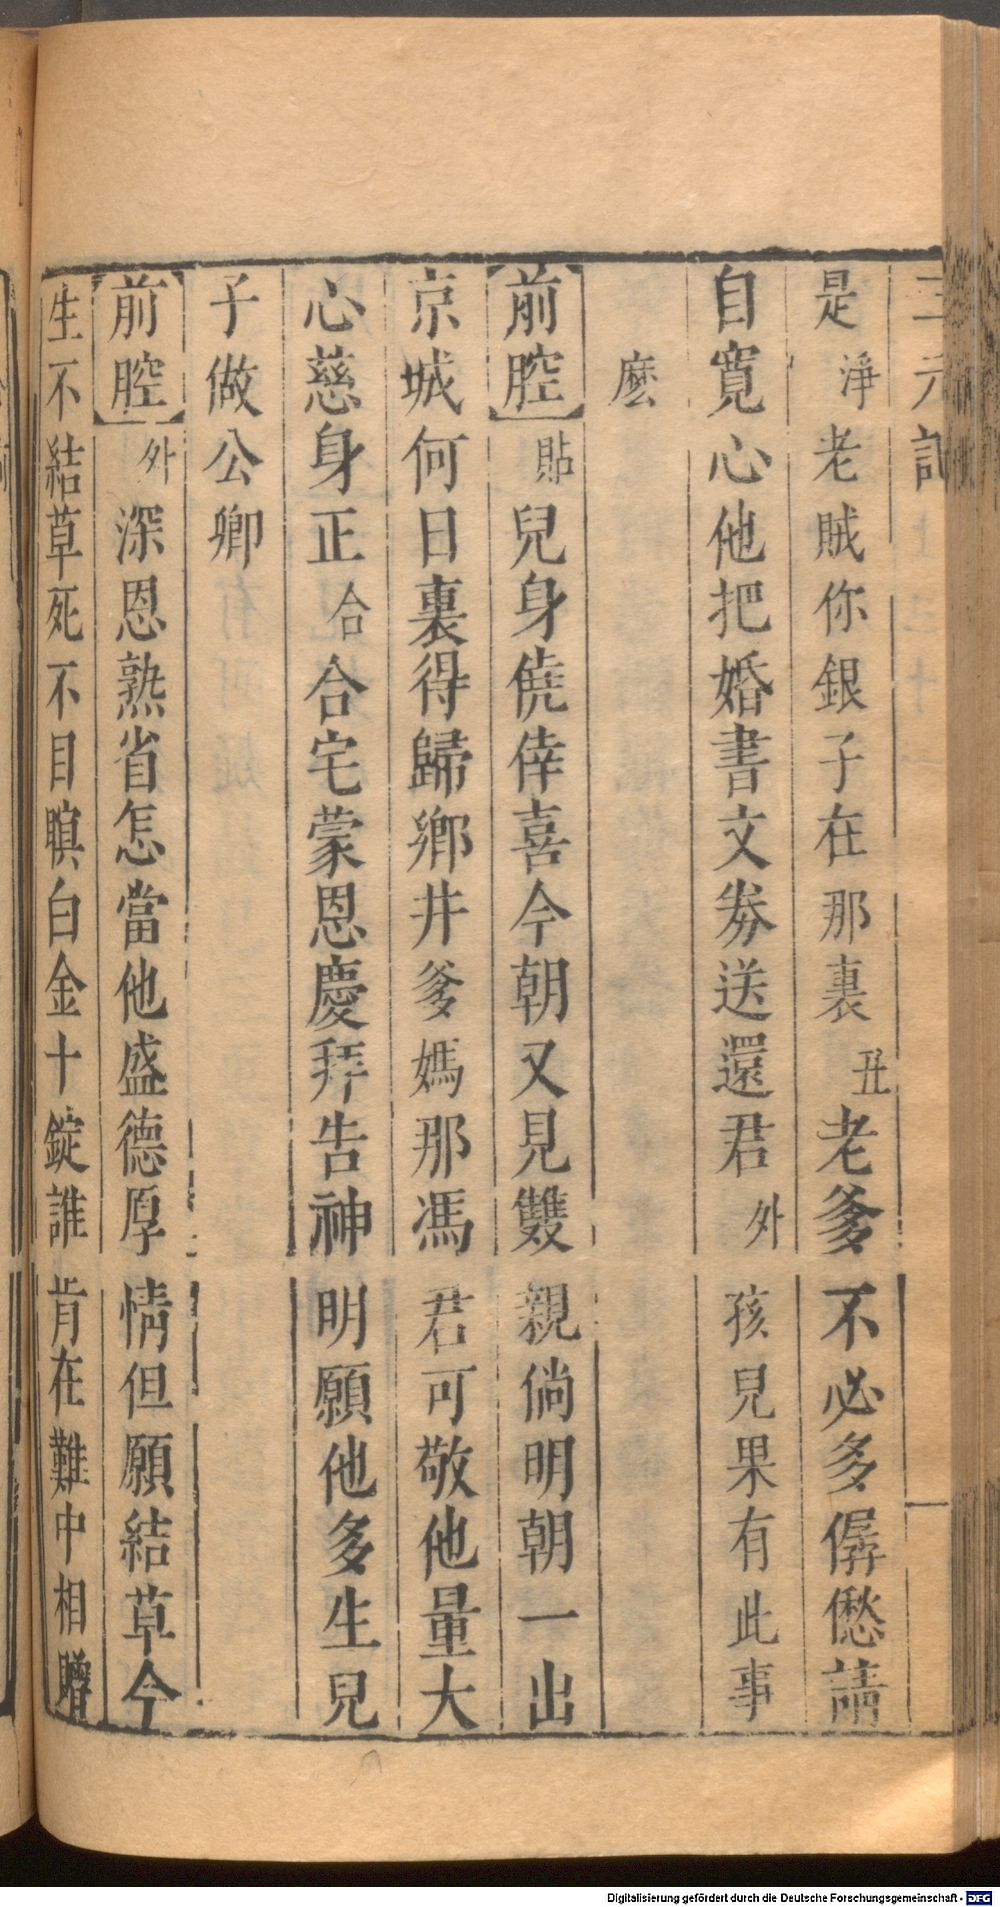 三元記
是淨老賊你銀子在那裏丑老爹不必多僝僽請
自寬心他把婚書文劵送還君外孩兒果有此事
麼
前腔貼兒身僥倖喜今朝又見雙親倘明朝一出
京城何日裏得歸鄉井爹媽那馮君可敬他量大
心慈身正合合宅蒙恩慶拜告神明願他多生兒
子做公卿
前腔外深恩熟省怎當他盛德厚情但願結草今
生不結草死不目瞑白金十錠誰肯在難中相贈
Digitalisierung gefördert durch die Deutsche Forschungsgemeinschaft - DFG